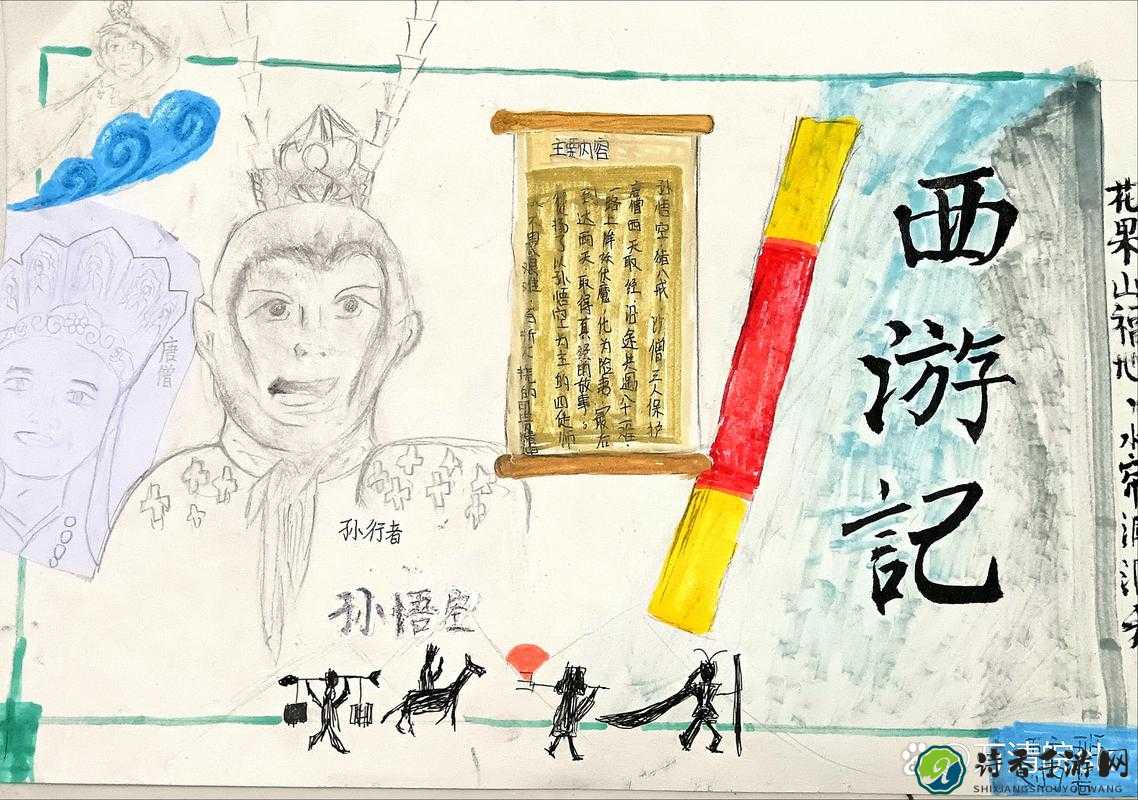 西游記
花果山福地,水帘洞洞天
主要内容
孙悟空 猪八戒 沙僧三人保护
唐僧西天取经 沿途共遇八十一难
一路上降妖伏魔,化为险夷 最后
到达西天 取得真经的故事。
了以孙悟空为主的四徒师
唐僧
孙行者
孙悟空
诗香手游网
SHIXIANGSHOUYOUWANG